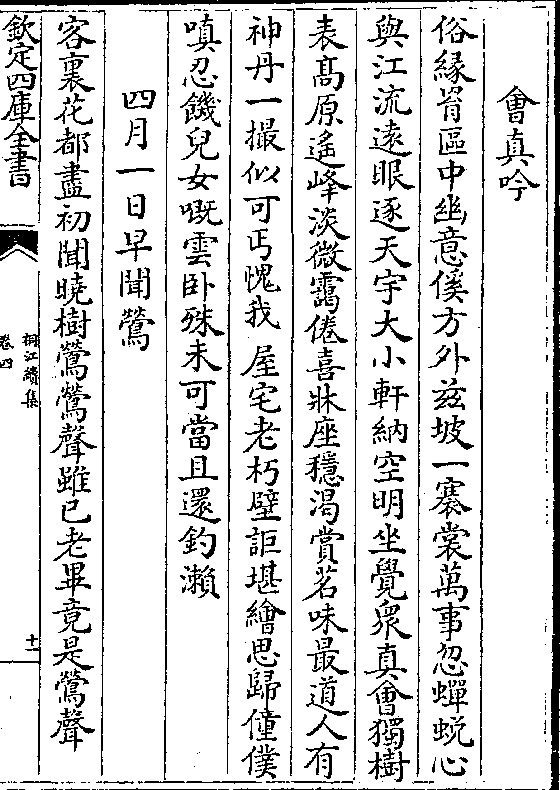 會真吟
俗縁胷區中幽意傒方外兹坡一褰裳萬事忽蟬蜕心
與江流遠眼逐天宇大小軒納空明坐覺衆真會獨樹
表髙原遥峰淡微靄倦喜牀座穩渴賞茗味最道人有
神丹一撮似可丐愧我屋宅老朽壁詎堪繪思歸僮僕
嗔忍饑兒女嘅雲卧殊未可當且還釣瀨
四月一日早聞鶯
客裏花都盡初聞曉樹鶯鶯聲雖已老畢竟是鶯聲
欽定四庫全書
桐江續集
卷四
十一